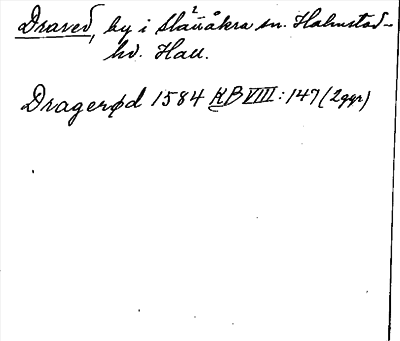 Draved, by i Slättåkra sn. Halmstad-
hd. Hall.
Dragerød 1584 KB VIII: 147 (2 ggr)